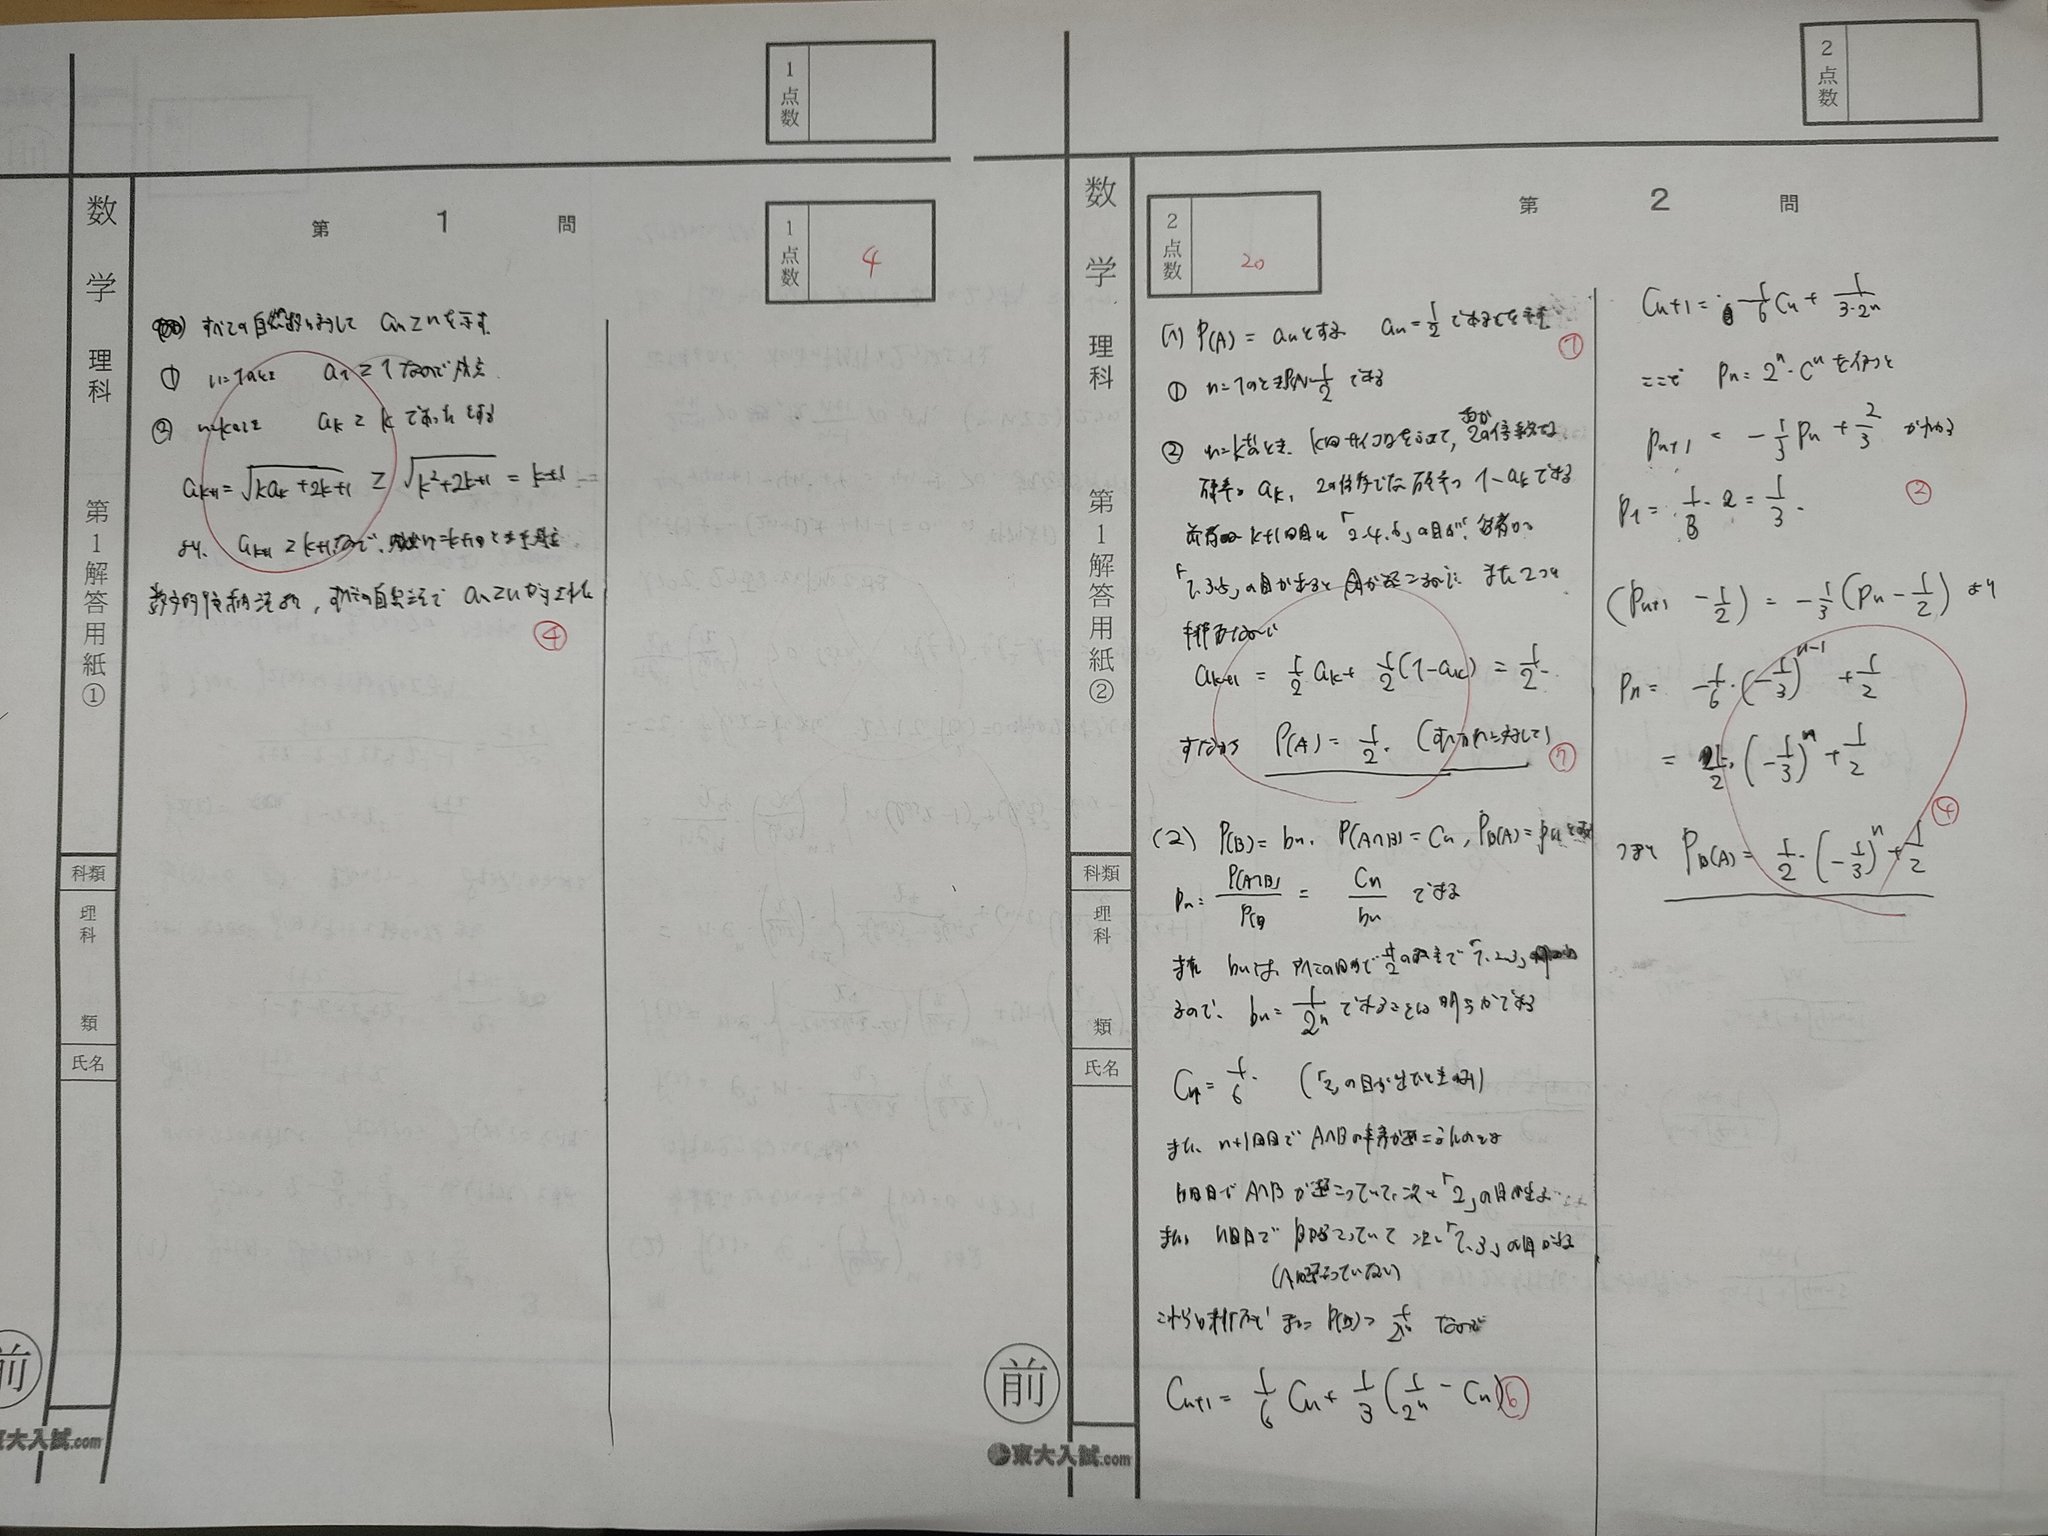 1
点
数
数学
理科
第1解答用紙①
科類
理科
類
氏名
前
東大入試.com
第 1 問
1
点
数
4
すべての自然数nに対して an≧nを示す.
① n=1のとき a1≧1なので成立.
② n=kのとき ak≧kであったとする
ak+1=√(kak+2k+1)≧√(k²+2k+1)=k+1
より, ak+1≧k+1なので、n=k+1のときも成立
数学的帰納法より, すべての自然数nで an≧nが示された
④
2
点
数
数学
理科
第1解答用紙②
科類
理科
類
氏名
前
東大入試.com
第 2 問
2
点
数
20
(1) P(A)=anとする an=1/2であることを示す
①
① n=1のとき 1/2である
② n=kのとき, k回サイコロをふって, 2の倍数である
確率が ak, 2の倍数でない確率が 1-akである
前者は k+1回目に「2.4.6」の目が, 後者は
「1.3.5」の目が出るとAが起こる また2つは
排反なので
ak+1=1/2ak+1/2(1-ak)=1/2.
すなわち P(A)=1/2. (すべてのnに対して)
⑦
(2) P(B)=bn. P(A∩B)=Cn, PB(A)=pnとする
pn=P(A∩B)/P(B)=Cn/bn である
また bnは, すべての目が1/2の確率で「1.2.3」
なので, bn=1/2ⁿであることは明らかである
C1=1/6. (「2」の目が出るときのみ)
また, n+1回目でA∩Bの事象が起こるのは
n回目でA∩Bが起こっていて, 次に「2」の目が出る
また, n回目でBが起こっていて 次に「1.3」の目が出る
(Aは起こっていない)
これらは排反で また P(B)=1/2ⁿ なので
Cn+1=1/6Cn+1/3(1/2ⁿ-Cn)
⑥
Cn+1=-1/6Cn+1/(3・2ⁿ)
ここで pn=2ⁿ・Cn を使うと
pn+1=-1/3pn+2/3 がわかる
p1=1/3・2=1/3.
②
(pn+1-1/2)=-1/3(pn-1/2) より
pn=-1/6・(-1/3)ⁿ⁻¹+1/2
=1/2・(-1/3)ⁿ+1/2
④
つまり PB(A)=1/2・(-1/3)ⁿ+1/2